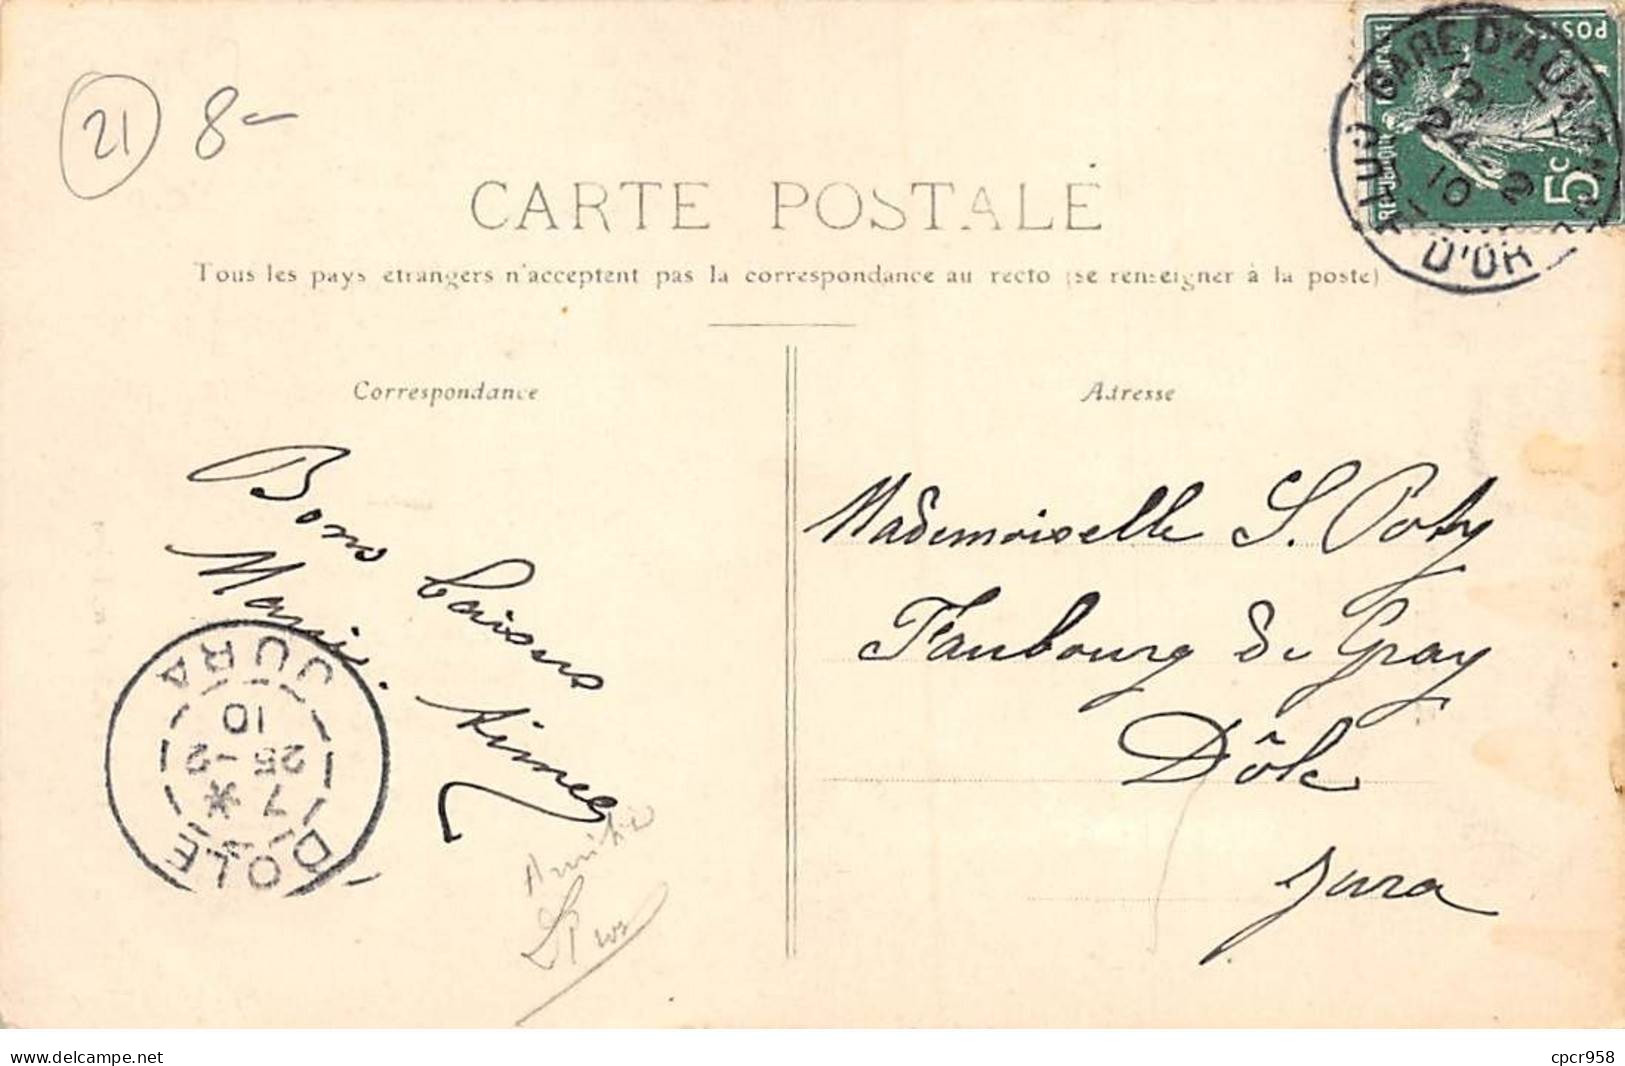 21 8-
GARE D'AUXONNE
24 - 2
10
D'OR
REPUBLIQUE FRANÇAISE
POSTES
5c
CARTE POSTALE
Tous les pays étrangers n'acceptent pas la correspondance au recto (se renseigner à la poste)
Correspondance
Adresse
Bons baisers
Marie. Aimée
Amitié
Mademoiselle S. Poty
Faubourg de Gray
Dôle
Jura
DOLE
7 *
25 - 2
10
JURA
www.delcampe.net
cpcr958